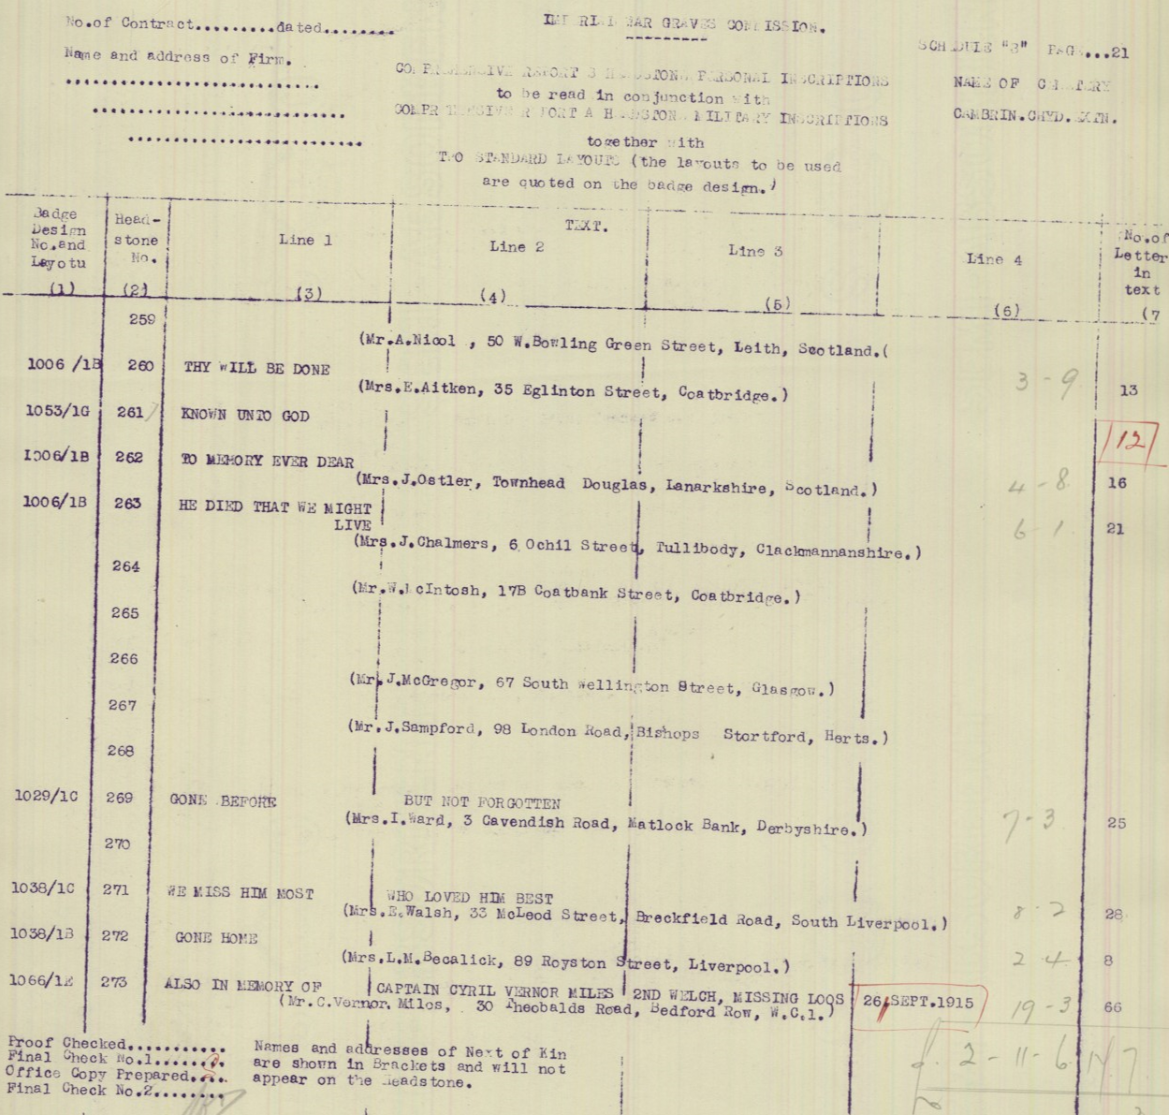 No.of Contract.........dated........
IMPERIAL WAR GRAVES COMMISSION.
SCHEDULE "B" PAGE...21
Name and address of Firm.
COMPREHENSIVE REPORT B HEADSTONE PERSONAL INSCRIPTIONS
NAME OF CEMETERY
to be read in conjunction with
COMPREHENSIVE REPORT A HEADSTONE MILITARY INSCRIPTIONS
CAMBRIN.CHYD.EXTN.
together with
TWO STANDARD LAYOUTS (the layouts to be used
are quoted on the badge design.)
Badge Design No.and Layotu
Head- stone No.
TEXT.
Line 1
Line 2
Line 3
Line 4
No.of Letter in text
(1) (2) (3) (4) (5) (6) (7
259
(Mr.A.Nicol , 50 W.Bowling Green Street, Leith, Scotland.(
1006 /1B 260 THY WILL BE DONE 3-9 13
(Mrs.E.Aitken, 35 Eglinton Street, Coatbridge.)
1053/1G 261 KNOWN UNTO GOD 12
1006/1B 262 TO MEMORY EVER DEAR 4-8 16
(Mrs.J.Ostler, Townhead Douglas, Lanarkshire, Scotland.)
1006/1B 263 HE DIED THAT WE MIGHT
LIVE 6-1 21
(Mrs.J.Chalmers, 6 Ochil Street, Tullibody, Clackmannanshire.)
264
(Mr.W.McIntosh, 17B Coatbank Street, Coatbridge.)
265
266
(Mr.J.McGregor, 67 South Wellington Street, Glasgow.)
267
(Mr.J.Sampford, 98 London Road, Bishops Stortford, Herts.)
268
1029/1C 269 GONE BEFORE BUT NOT FORGOTTEN 7-3 25
(Mrs.I.Ward, 3 Cavendish Road, Matlock Bank, Derbyshire.)
270
1038/1C 271 WE MISS HIM MOST WHO LOVED HIM BEST 8-2 28
(Mrs.E.Walsh, 33 McLeod Street, Breckfield Road, South Liverpool.)
1038/1B 272 GONE HOME 2-4 8
(Mrs.L.M.Becalick, 89 Royston Street, Liverpool.)
1066/1E 273 ALSO IN MEMORY OF CAPTAIN CYRIL VERNOR MILES 2ND WELCH, MISSING LOOS 26 SEPT.1915 19-3 66
(Mr.C.Vernor Miles, 30 Theobalds Road, Bedford Row, W.C.1.)
Proof Checked...........
Final Check No.1........
Office Copy Prepared....
Final Check No.2........
Names and addresses of Next of Kin
are shown in Brackets and will not
appear on the Headstone.
2-11-6